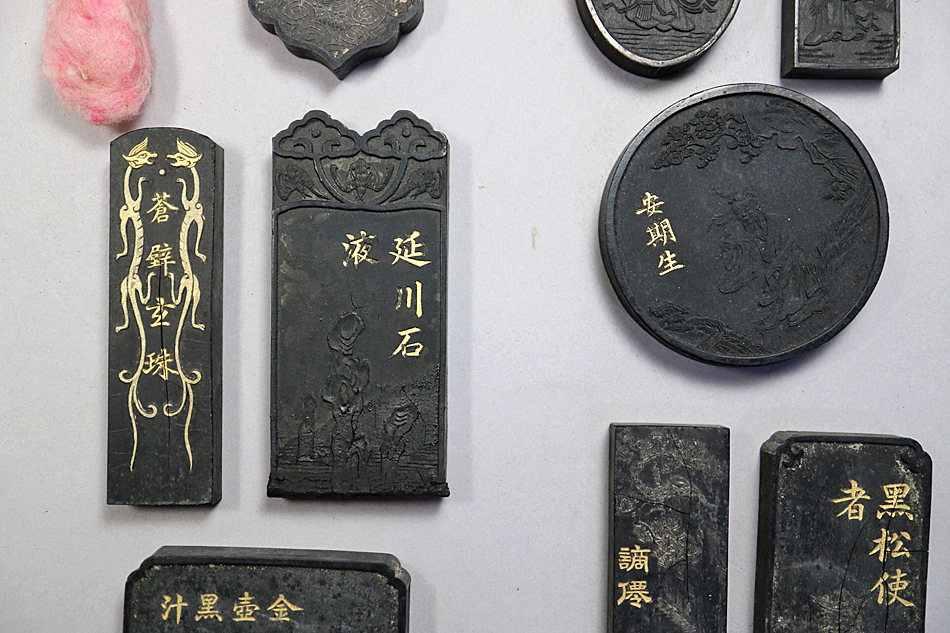 蒼璧玄珠
延川石
液
安期生
金壺黑汁
謫僊
黑松使
者